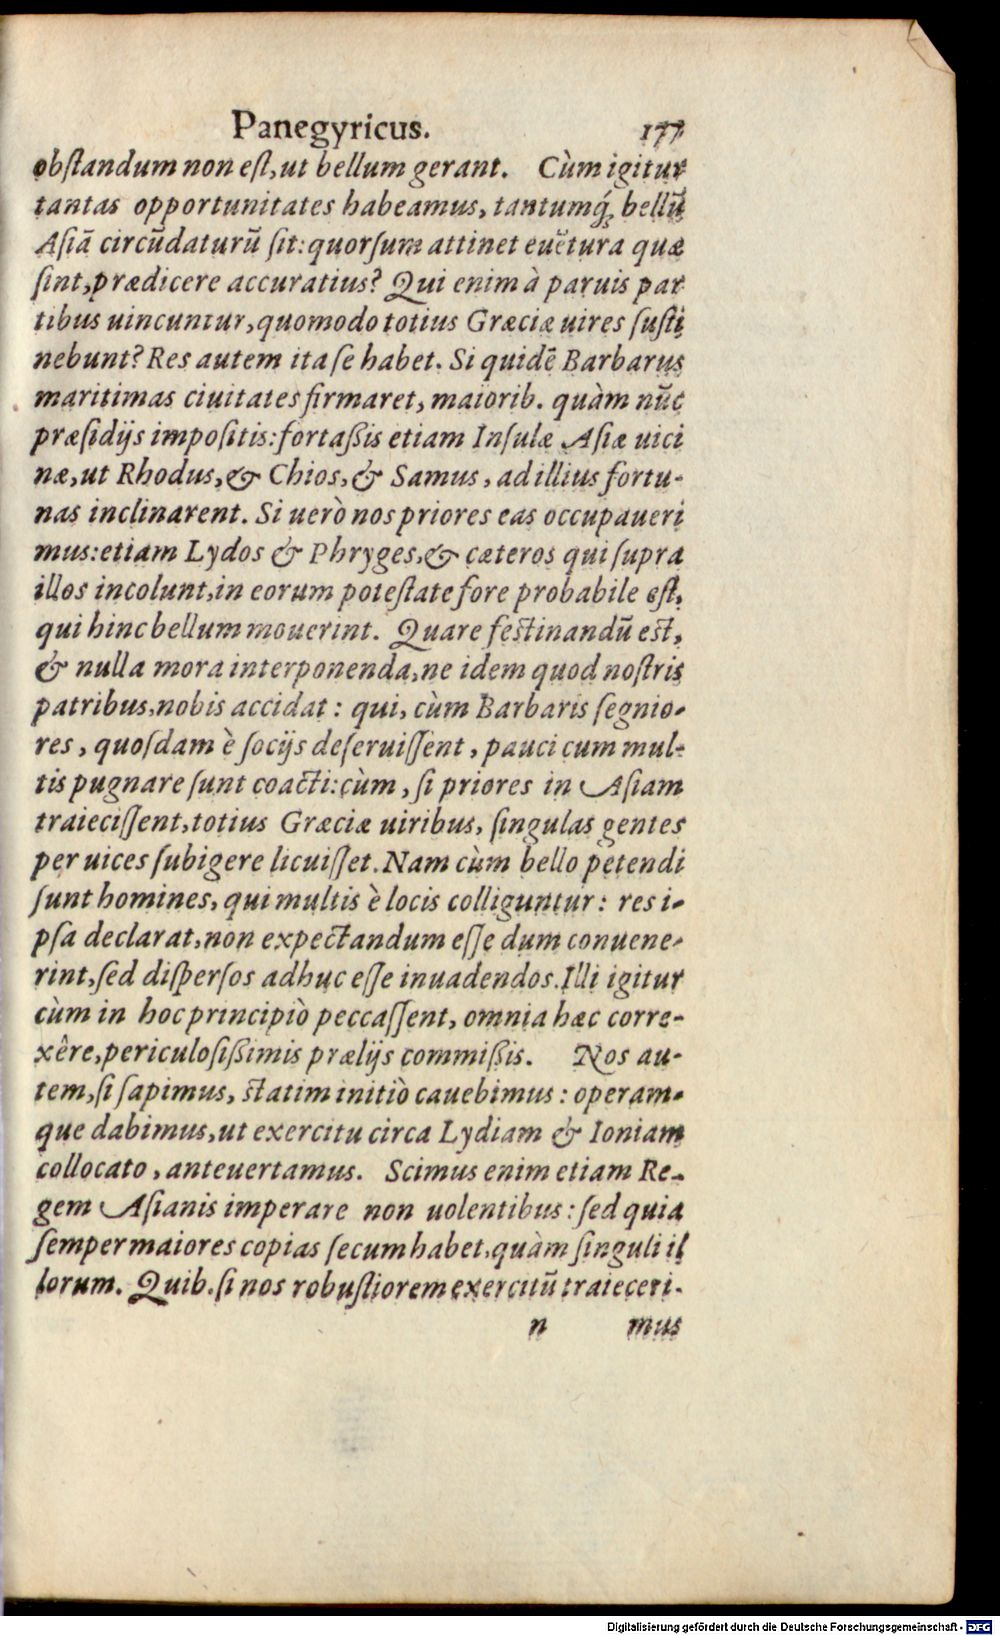 Panegyricus. 177
obſtandum non eſt, ut bellum gerant. Cùm igitur
tantas opportunitates habeamus, tantumq́; bellū
Aſiā circūdaturū ſit: quorſum attinet euētura quæ
ſint, prædicere accuratius? Qui enim à paruis par
tibus uincuntur, quomodo totius Græciæ uires ſuſti
nebunt? Res autem ita ſe habet. Si quidē Barbarus
maritimas ciuitates firmaret, maiorib. quàm nūc
præſidijs impoſitis: fortaßis etiam Inſulæ Aſiæ uici
næ, ut Rhodus, & Chios, & Samus, ad illius fortu-
nas inclinarent. Si uerò nos priores eas occupaueri
mus: etiam Lydos & Phryges, & cæteros qui ſupra
illos incolunt, in eorum poteſtate fore probabile eſt,
qui hinc bellum mouerint. Quare feſtinandū eſt,
& nulla mora interponenda, ne idem quod noſtris
patribus, nobis accidat: qui, cùm Barbaris ſegnio-
res, quoſdam è ſocijs deſeruiſſent, pauci cum mul-
tis pugnare ſunt coacti: cùm, ſi priores in Aſiam
traieciſſent, totius Græciæ uiribus, ſingulas gentes
per uices ſubigere licuiſſet. Nam cùm bello petendi
ſunt homines, qui multis è locis colliguntur: res i-
pſa declarat, non expectandum eſſe dum conuene-
rint, ſed diſperſos adhuc eſſe inuadendos. Illi igitur
cùm in hoc principiò peccaſſent, omnia hæc corre-
xêre, periculoſißimis prælijs commißis. Nos au-
tem, ſi ſapimus, ſtatim initiò cauebimus: operam-
que dabimus, ut exercitu circa Lydiam & Ioniam
collocato, anteuertamus. Scimus enim etiam Re-
gem Aſianis imperare non uolentibus: ſed quia
ſemper maiores copias ſecum habet, quàm ſinguli il
lorum. Quib. ſi nos robuſtiorem exercitū traieceri-
n mus
Digitalisierung gefördert durch die Deutsche Forschungsgemeinschaft - DFG